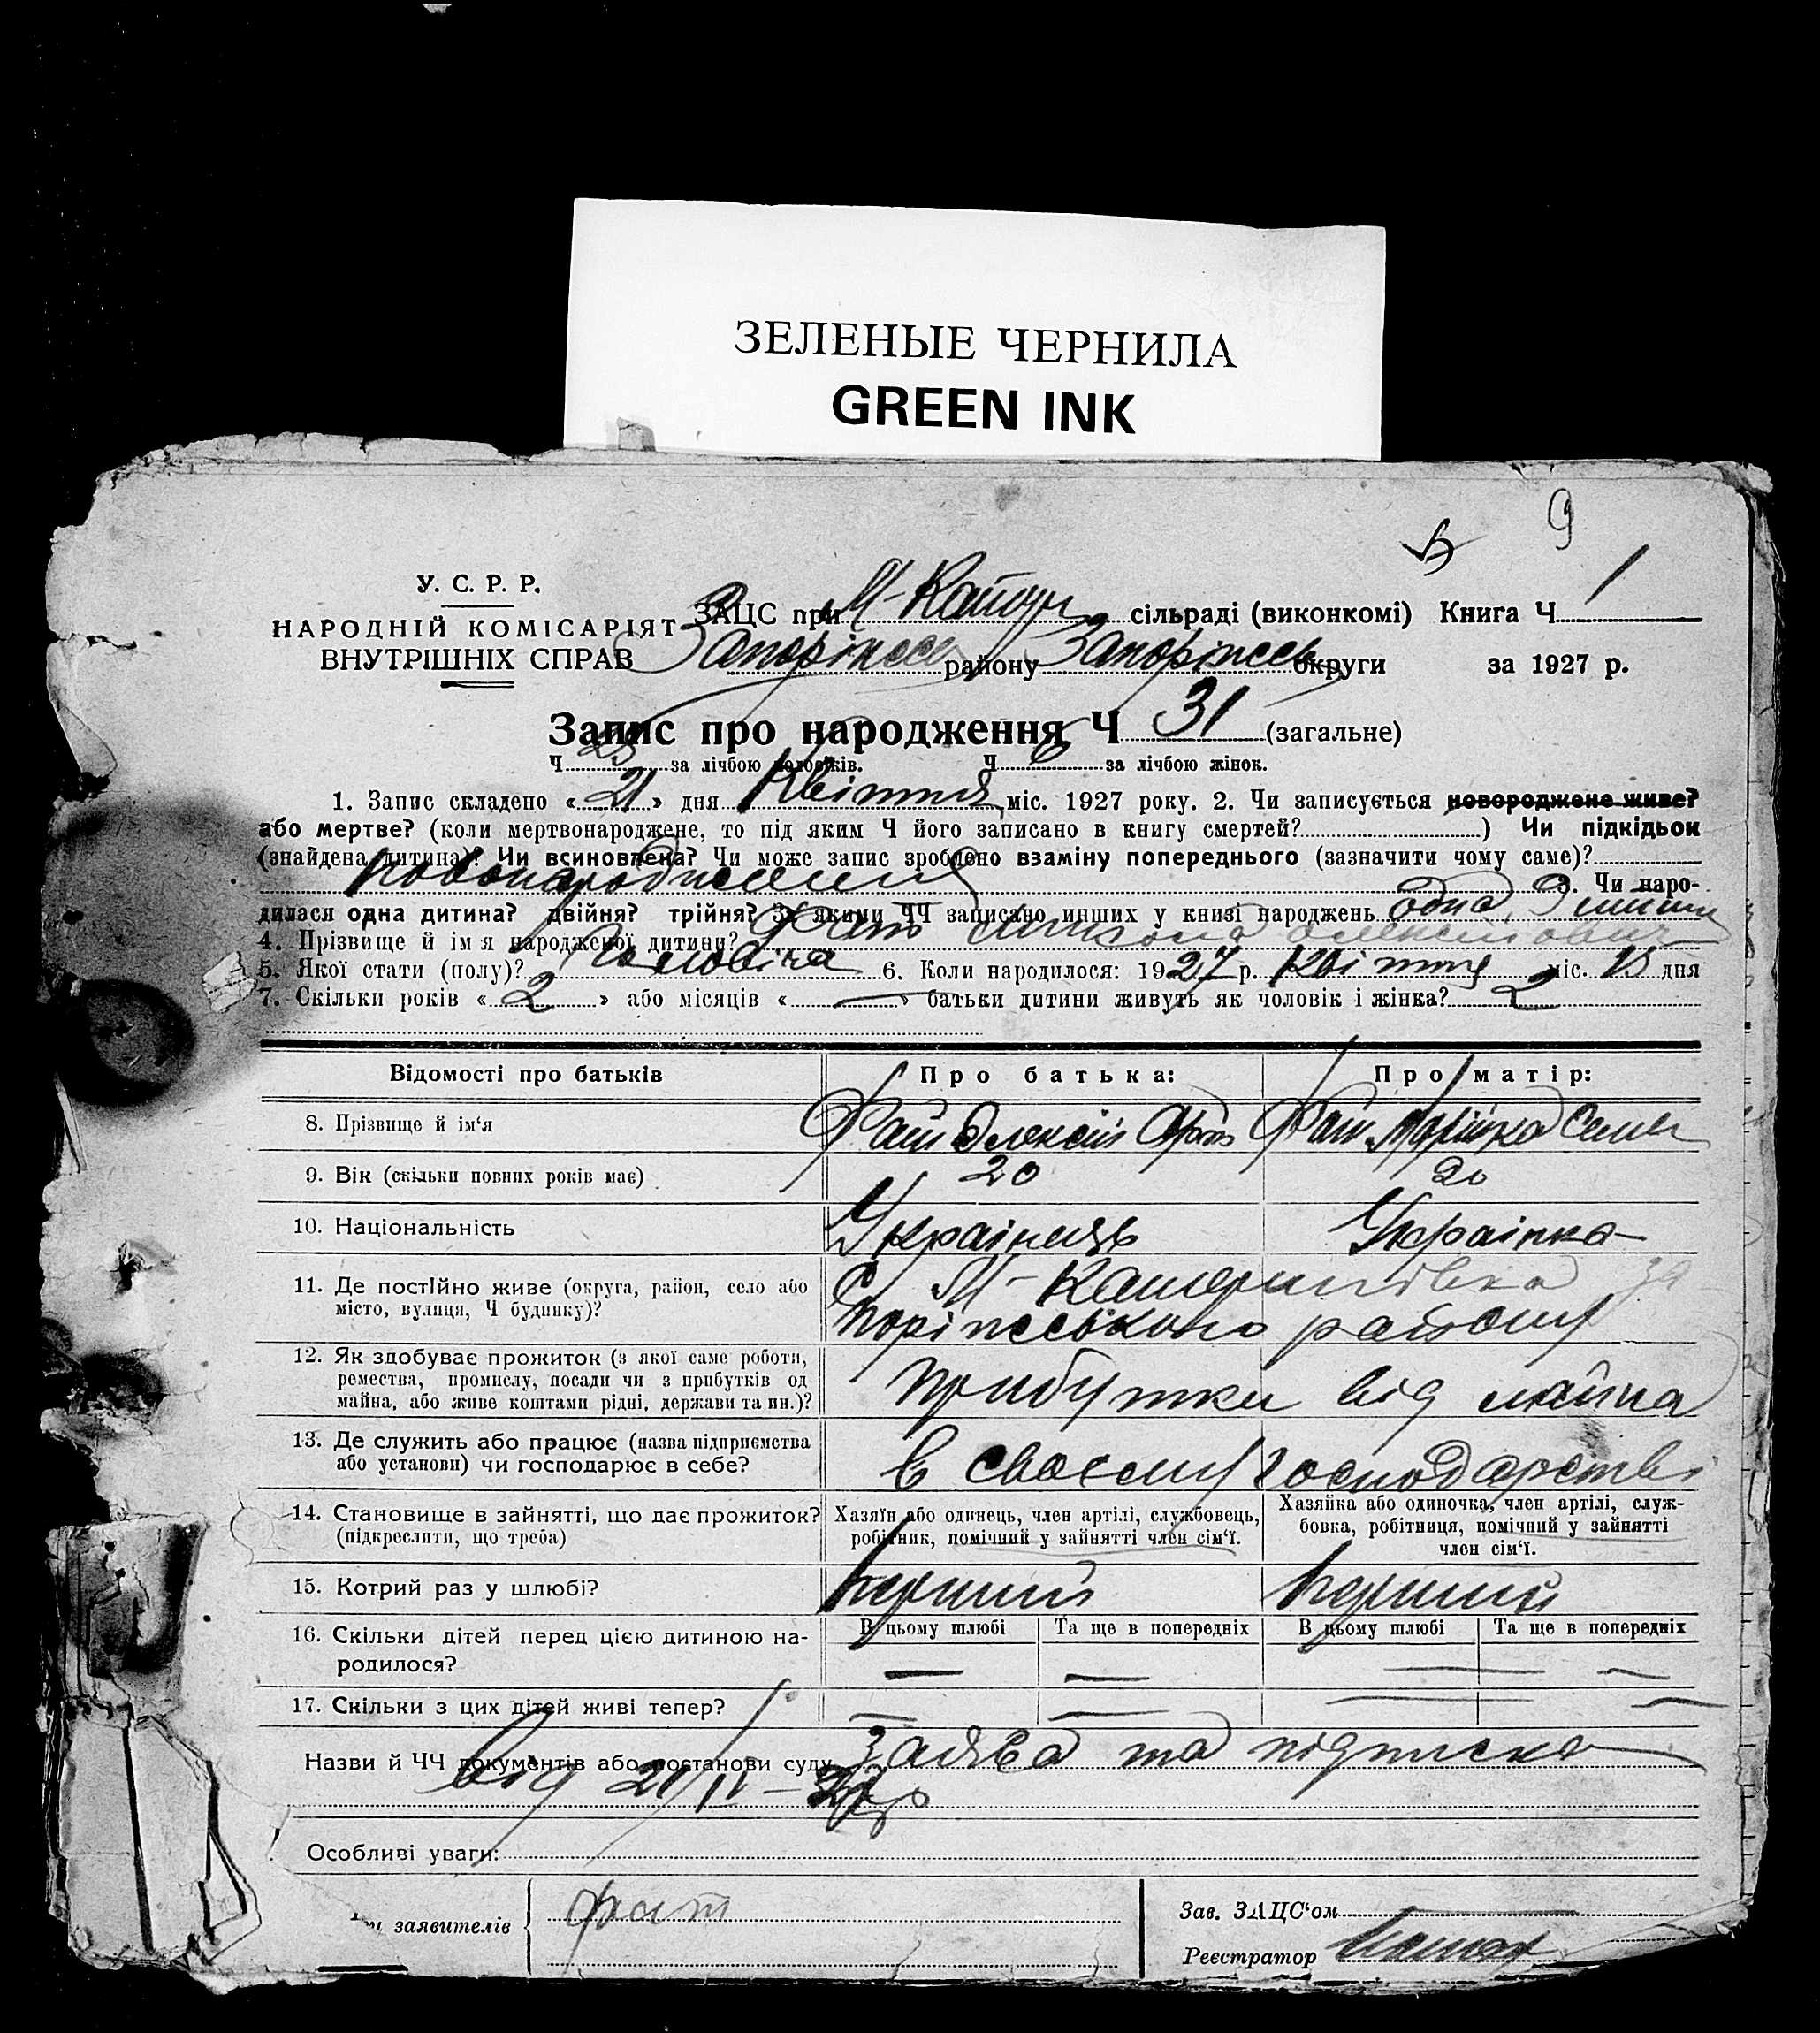 ЗЕЛЕНЫЕ ЧЕРНИЛА
GREEN INK
9
У. С. Р. Р.
НАРОДНІЙ КОМІСАРІЯТ
ВНУТРІШНІХ СПРАВ
ЗАЦС при М-Катер сільраді (виконкомі) Книга Ч 1
району округи за 1927 р.
Запис про народження Ч 31 (загальне)
Ч за лічбою чоловіків. Ч за лічбою жінок.
1. Запис складено « 21 » дня Квітня міс. 1927 року. 2. Чи записується новороджене живе?
або мертве? (коли мертвонароджене, то під яким Ч його записано в книгу смертей? ) Чи підкідьок
(знайдена дитина)? Чи всиновлена? Чи може запис зроблено взаміну попереднього (зазначити чому саме)?
3. Чи наро-
дилася одна дитина? двійня? трійня? За якими ЧЧ записано инших у книзі народжень одна
4. Прізвище й імя народженої дитини?
5. Якої стати (полу)? Чоловіча 6. Коли народилося: 1927 р. Квітня міс. дня
7. Скільки років « 2 » або місяців « — » батьки дитини живуть як чоловік і жінка? 2
Відомості про батьків
Про батька:
Про матір:
8. Прізвище й ім‘я
9. Вік (скільки повних років має) 20 20
10. Національність Українець Українка
11. Де постійно живе (округа, район, село або
місто, вулиця, Ч будинку)?
С М-Катеринівка За
порізського району
12. Як здобуває прожиток (з якої саме роботи,
ремества, промислу, посади чи з прибутків од
майна, або живе коштами рідні, держави та ин.)?
прибутки від майна
13. Де служить або працює (назва підприємства
або установи) чи господарює в себе?
в своєму господарстві
14. Становище в зайнятті, що дає прожиток?
(підкреслити, що треба)
Хазяїн або одинець, член артілі, службовець,
робітник, помічний у зайнятті член сім‘ї.
Хазяйка або одиночка, член артілі, служ-
бовка, робітниця, помічний у зайнятті
член сім‘ї.
15. Котрий раз у шлюбі? перший перший
16. Скільки дітей перед цією дитиною на-
родилося?
В цьому шлюбі
Та ще в попередніх
В цьому шлюбі
Та ще в попередніх
— — — —
17. Скільки з цих дітей живі тепер? — — — —
Назви й ЧЧ документів або постанови суду Заява та підписка
від 21/IV – 27 р
Особливі уваги:
заявителів
Зав. ЗАЦС‘ом
Реєстратор